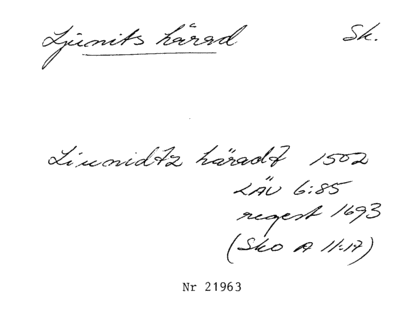 Ljunits härad Sk.
Liunidtz häradt 1502
LÄU 6:85
regest 1693
(Sko A 11:17)
Nr 21963